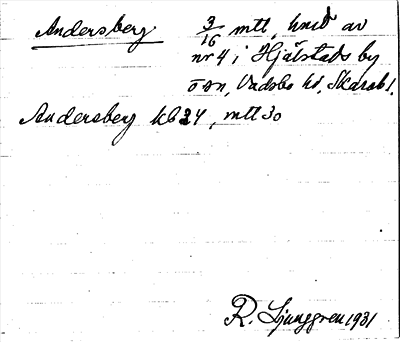 Andersberg 3/16 mtt, hmd av
nr 4 i Hjälstads by
o sn, Vadsbo hd, Skarab l.
Andersberg kb 24, mtt 30
R. Ljunggren 1931